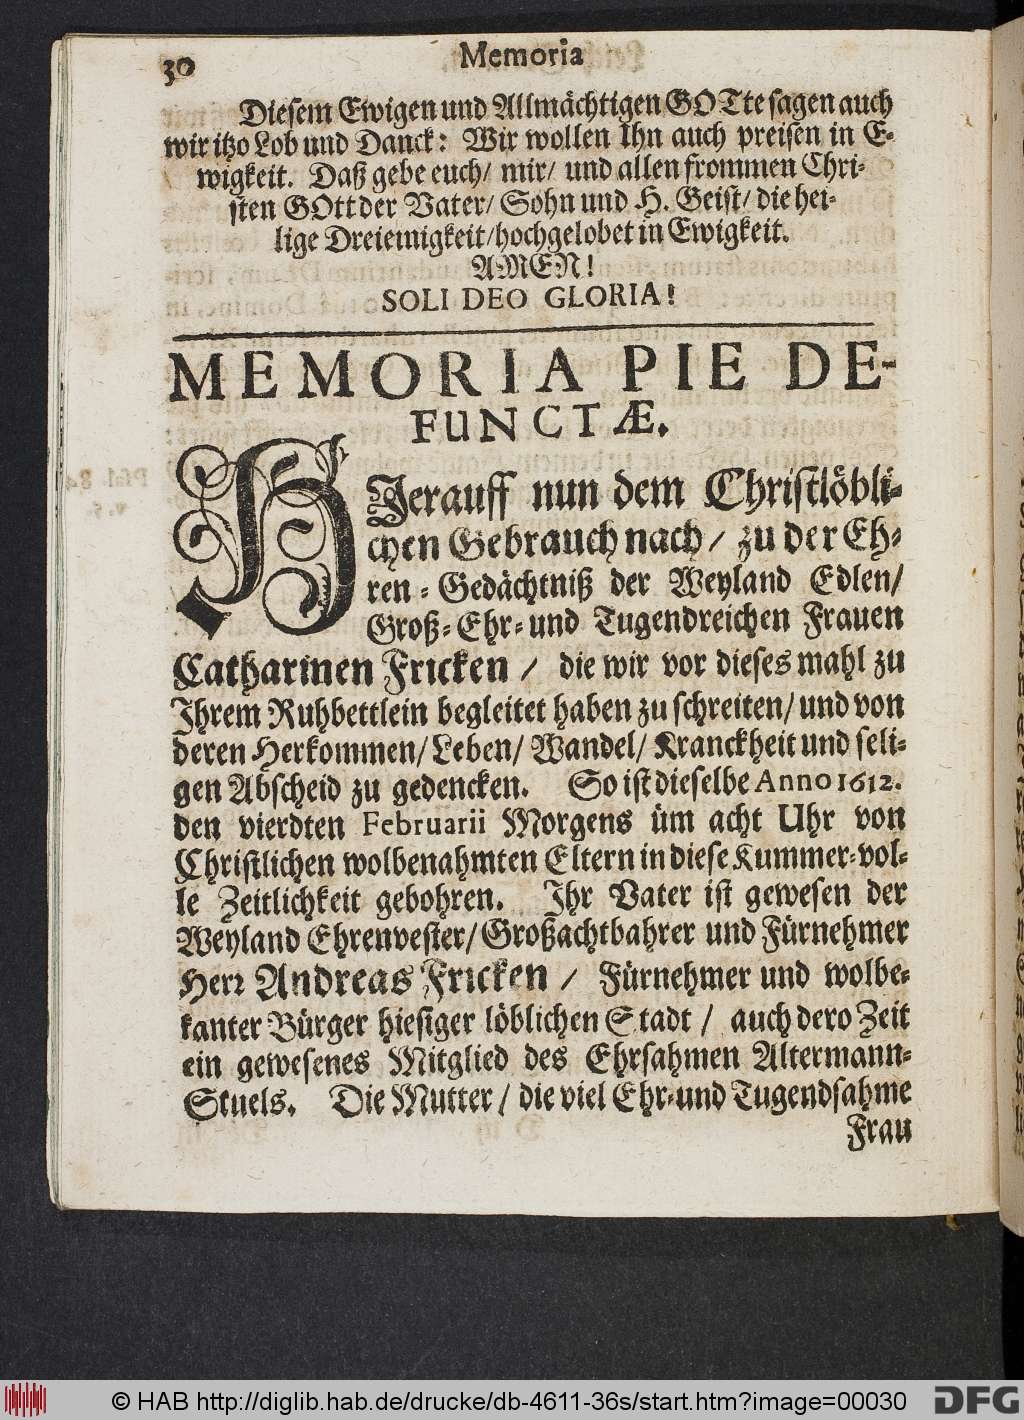 30
Memoria
Diesem Ewigen und Allmächtigen GOTte sagen auch
wir itzo Lob und Danck: Wir wollen Ihn auch preisen in E-
wigkeit. Daß gebe euch/ mir/ und allen frommen Chri-
sten GOtt der Vater/ Sohn und H. Geist/ die hei-
lige Dreieinigkeit/ hochgelobet in Ewigkeit.
AMEN!
SOLI DEO GLORIA!
MEMORIA PIE DE-
FUNCTÆ.
HJerauff nun dem Christlöbli-
chen Gebrauch nach/ zu der Eh-
ren-Gedächtniß der Weyland Edlen/
Groß-Ehr-und Tugendreichen Frauen
Catharinen Fricken/ die wir vor dieses mahl zu
Ihrem Ruhbettlein begleitet haben zu schreiten/ und von
deren Herkommen/ Leben/ Wandel/ Kranckheit und seli-
gen Abscheid zu gedencken. So ist dieselbe Anno 1612.
den vierdten Februarii Morgens üm acht Uhr von
Christlichen wolbenahmten Eltern in diese Kummer-vol-
le Zeitlichkeit gebohren. Ihr Vater ist gewesen der
Weyland Ehrenvester/ Großachtbahrer und Fürnehmer
Herr Andreas Fricken/ Fürnehmer und wolbe-
kanter Bürger hiesiger löblichen Stadt/ auch dero Zeit
ein gewesenes Mitglied des Ehrsahmen Altermann-
Stuels. Die Mutter/ die viel Ehr-und Tugendsahme
Frau
© HAB http://diglib.hab.de/drucke/db-4611-36s/start.htm?image=00030
DFG